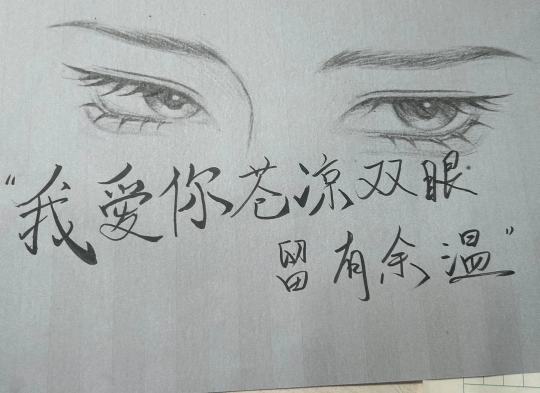 “我愛你苍凉双眼
留有余温”